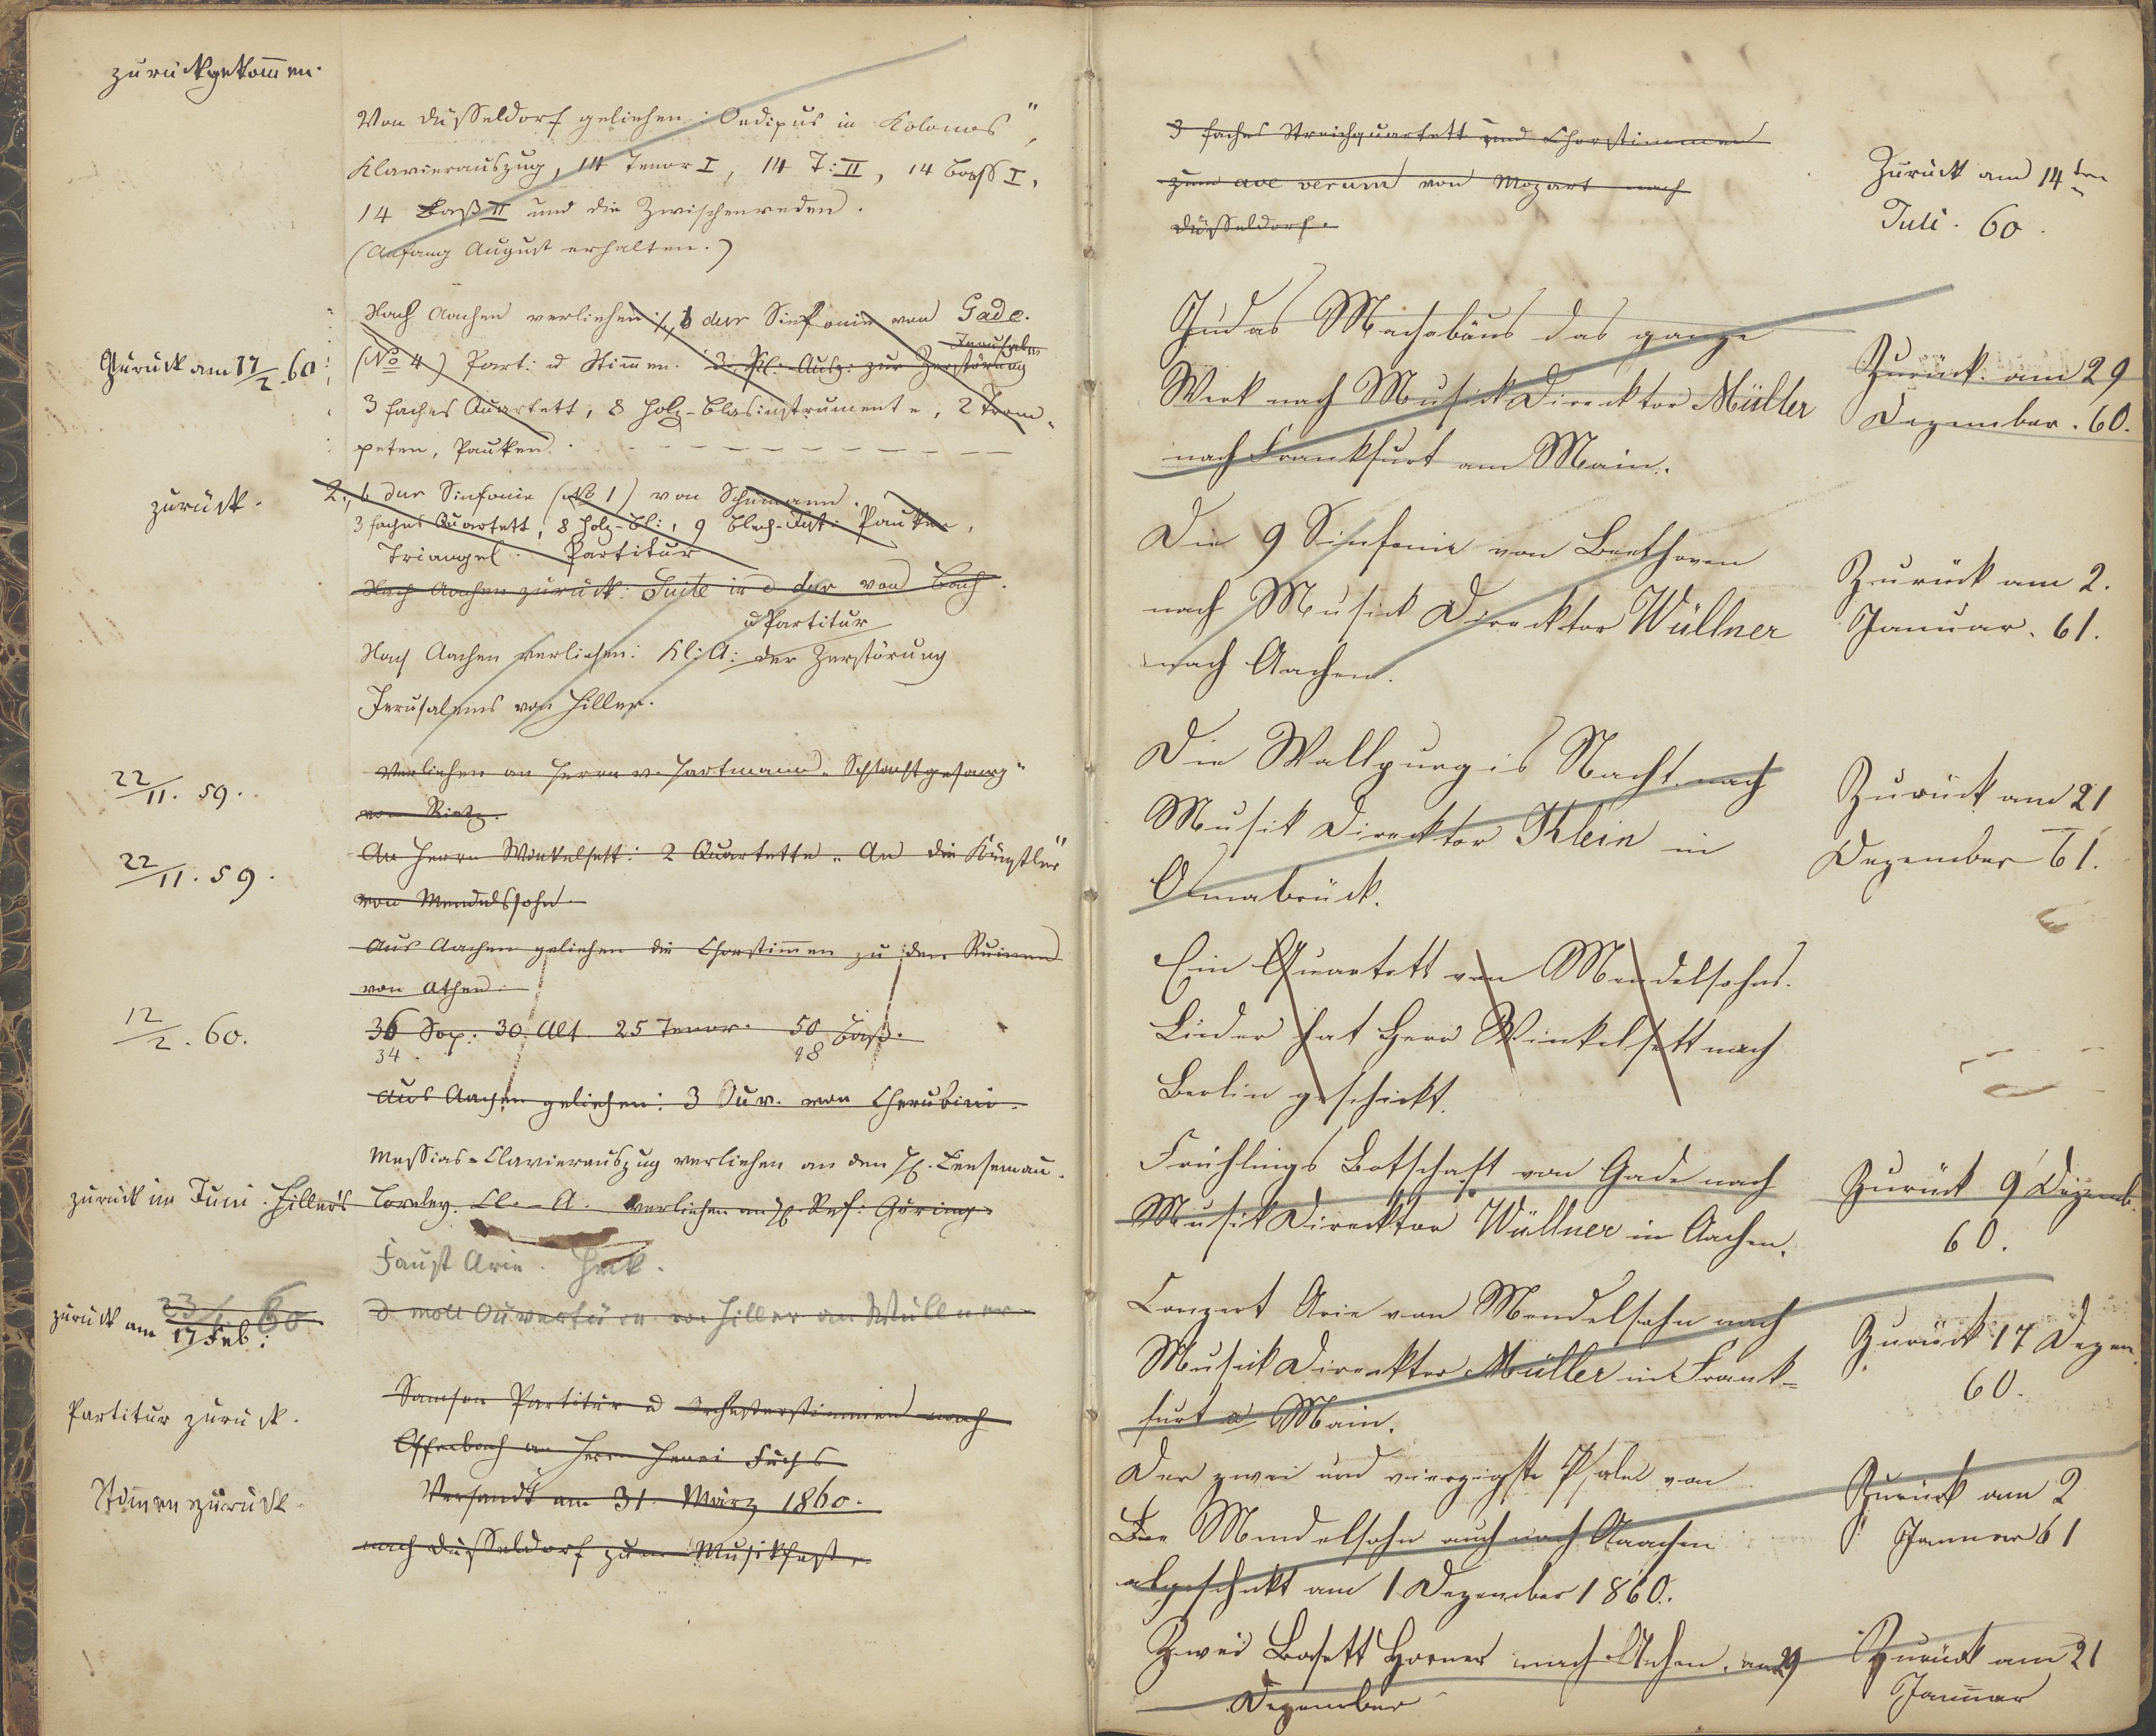 zurückgekom̄en.
Von Düsseldorf geliehen: Oedipus in Kolonos",
Klavierauszug, 14 Tenor I, 14 T: II, 14 Bass I,
14 Baß II und die Zwischenreden.
(Anfang August erhalten.)
Nach Aachen verliehen: 1, b dur Sinfonie von Gade.
Jerusalems
Zurück am 17/2. 60
(No 4) Part: u Stim̄en. 3 Kl: Ausz: zur Zerstörung
3 faches Quartett, 8 Holz-Blasinstrumente, 2 Trom-
peten, Pauken.
zurück.
2., b dur Sinfonie (No 1) von Schumann.
3 faches Quartett, 8 Holz-Bl:, 9 Blech-Inst: Pauken,
Triangel. Partitur
Nach Aachen zurück: Suite in d dur von Bach.
u Partitur
Nach Aachen verliehen: Kl: A: der Zerstörung
Jerusalems von Hiller.
22/11. 59.
Verliehen an Herrn v. Hartmann „Schlachtgesang"
von Rietz.
22/11. 59.
An Herrn Winkelsett: 2 Quartette „An die Künstler"
von Mendelssohn
Aus Aachen geliehen die Chorstim̄en zu den Ruinen
von Athen.
12/2. 60.
36 Sop: 30. Alt. 25 Tenor. 50 Baß.
34. 48
Aus Aachen geliehen: 3 Ouv. von Cherubini.
Messias-Clavierauszug verliehen an den H. Leesemau.
zurück im Juni. Hiller's Loreley. Cl.-A. verliehen an H. Ref: Göring.
Faust Arie. Heck.
zurück am 23/1 60
17 Feb:
d moll Ouvertüre von Hiller an Wüllner
Partitur zurück.
Samson Partitur u Orchesterstimmen nach
Offenbach an Herrn Henri Fuchs
Stim̄en zurück.
Versandt am 31. März 1860.
nach Düsseldorf zum Musikfest.
3 faches Streichquartett und Chorstimmen
zum ave verum von Mozart nach
Düsseldorf.
Zurück am 14ten
Juli. 60.
Judas Machabäus das ganze
Werk nach Musick Direcktor Müller
nach Frankfurt am Main.
Zurück. am 29
Dezember. 60.
Die 9 Sinfonie von Beethoven
nach Musick Direcktor Wüllner
nach Aachen.
Zurück am 2.
Januar. 61.
Die Wallpurgis Nacht. nach
Musik Direcktor Klein in
Osnabrück.
Zurück am 21
Dezember 61.
Ein Quartett von Mendelsohns.
Lieder hat Herr Winkelsett nach
Berlin geschickt.
Frühlings Botschaft von Gade nach
Musik Direcktor Wüllner in Aachen.
Zurück 9 Dezemb.
60.
Conzert Arie von Mendelsohn nach
Musick Direcktor Müller in Frank-
furt a Main.
Zurück 17 Dezem.
60.
Der zwei und vierzigste Psalm von
Mendelsohn auch nach Aaachen
abgeschickt am 1 Dezember 1860.
Zurück am 2
Januar 61
Zwei Basett Hörner nach Achen. am 29
Dezember
Zurück am 21
Januar